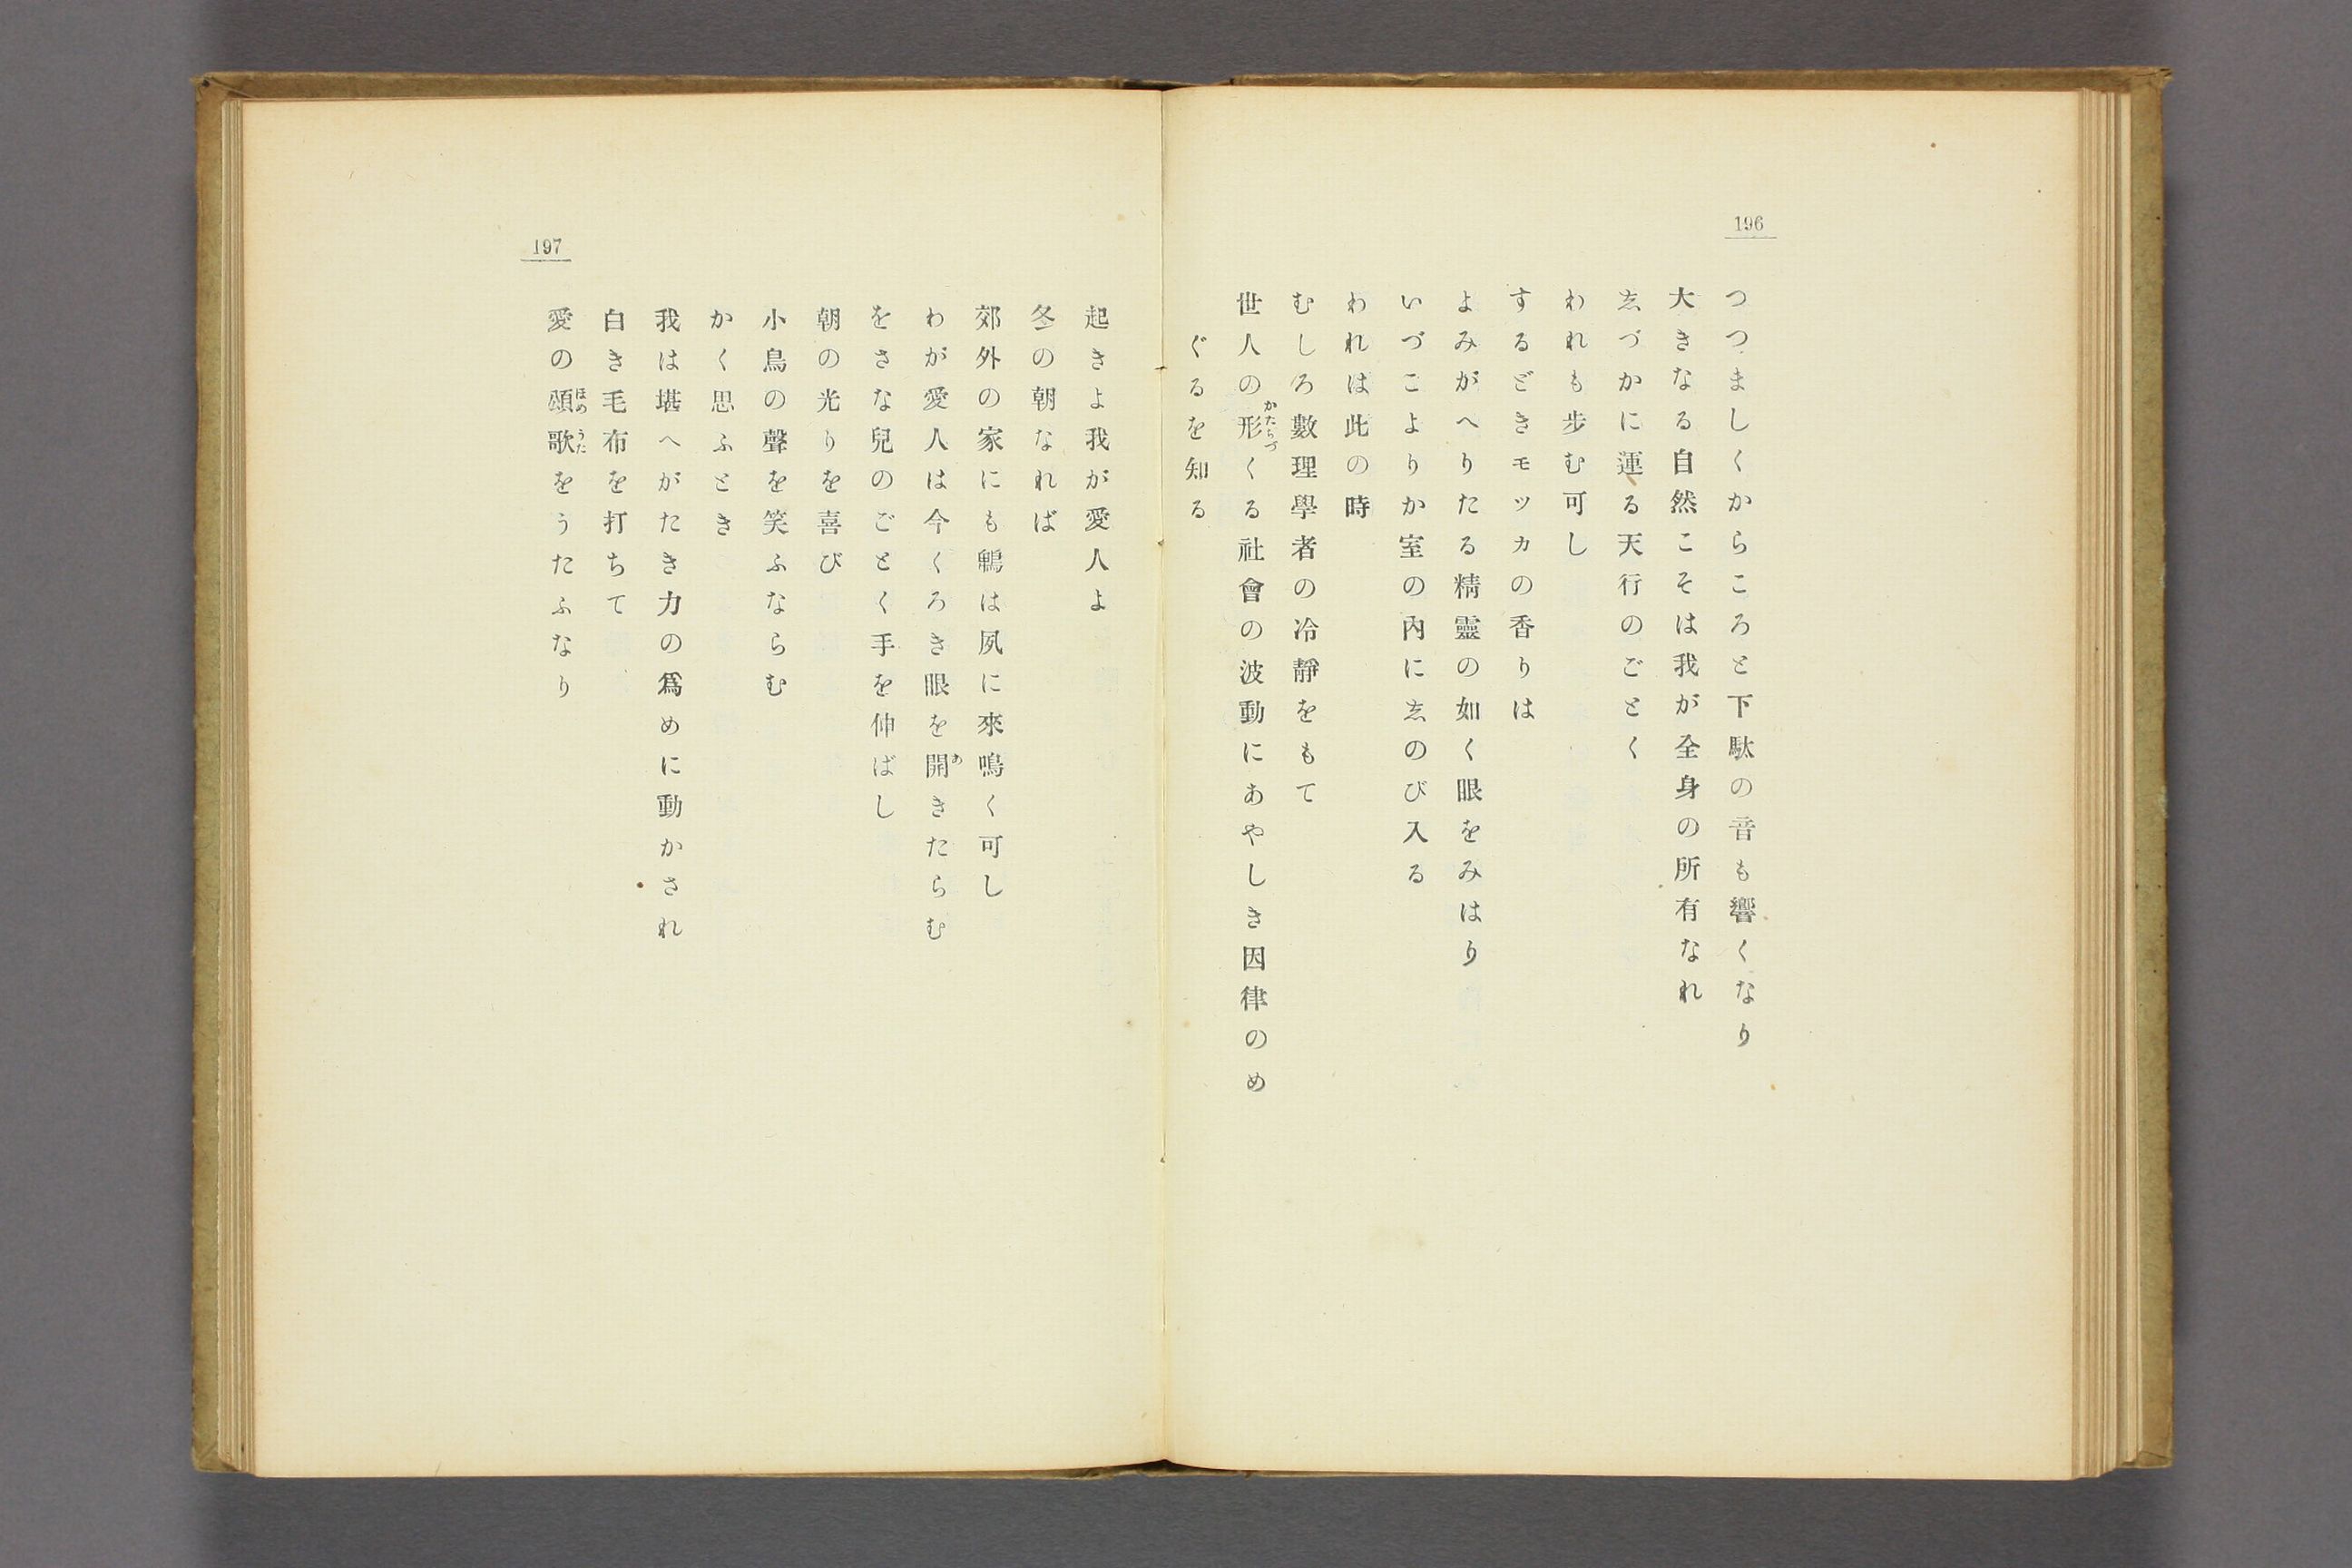 196
つつましくからころと下駄の音も響くなり
大きなる自然こそは我が全身の所有なれ
志づかに運る天行のごとく
われも歩む可し
するどきモツカの香りは
よみがへりたる精靈の如く眼をみはり
いづこよりか室の內に志のび入る
われは此の時
むしろ數理學者の冷靜をもて
世人の形くる社會の波動にあやしき因律のめ
かたちづ
ぐるを知る
197
起きよ我が愛人よ
冬の朝なれば
郊外の家にも鵯は夙に來鳴く可し
わが愛人は今くろき眼を開きたらむ
あ
をさな兒のごとく手を伸ばし
朝の光りを喜び
小鳥の聲を笑ふならむ
かく思ふとき
我は堪へがたき力の爲めに動かされ
白き毛布を打ちて
愛の頌歌をうたふなり
ほめうた